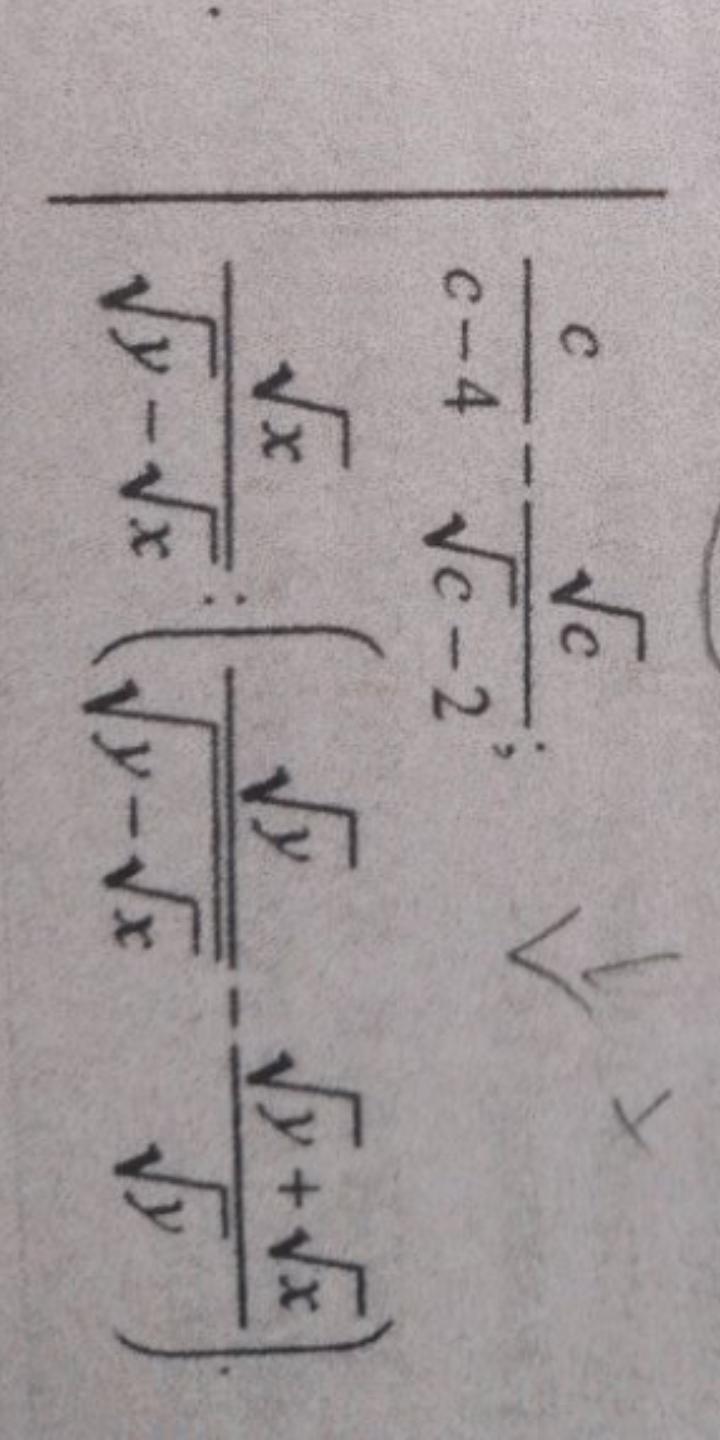 c/(c − 4) − √c/(√c − 2);
√x/(√y − √x) : (√y/(√y − √x) − (√y + √x)/√y).